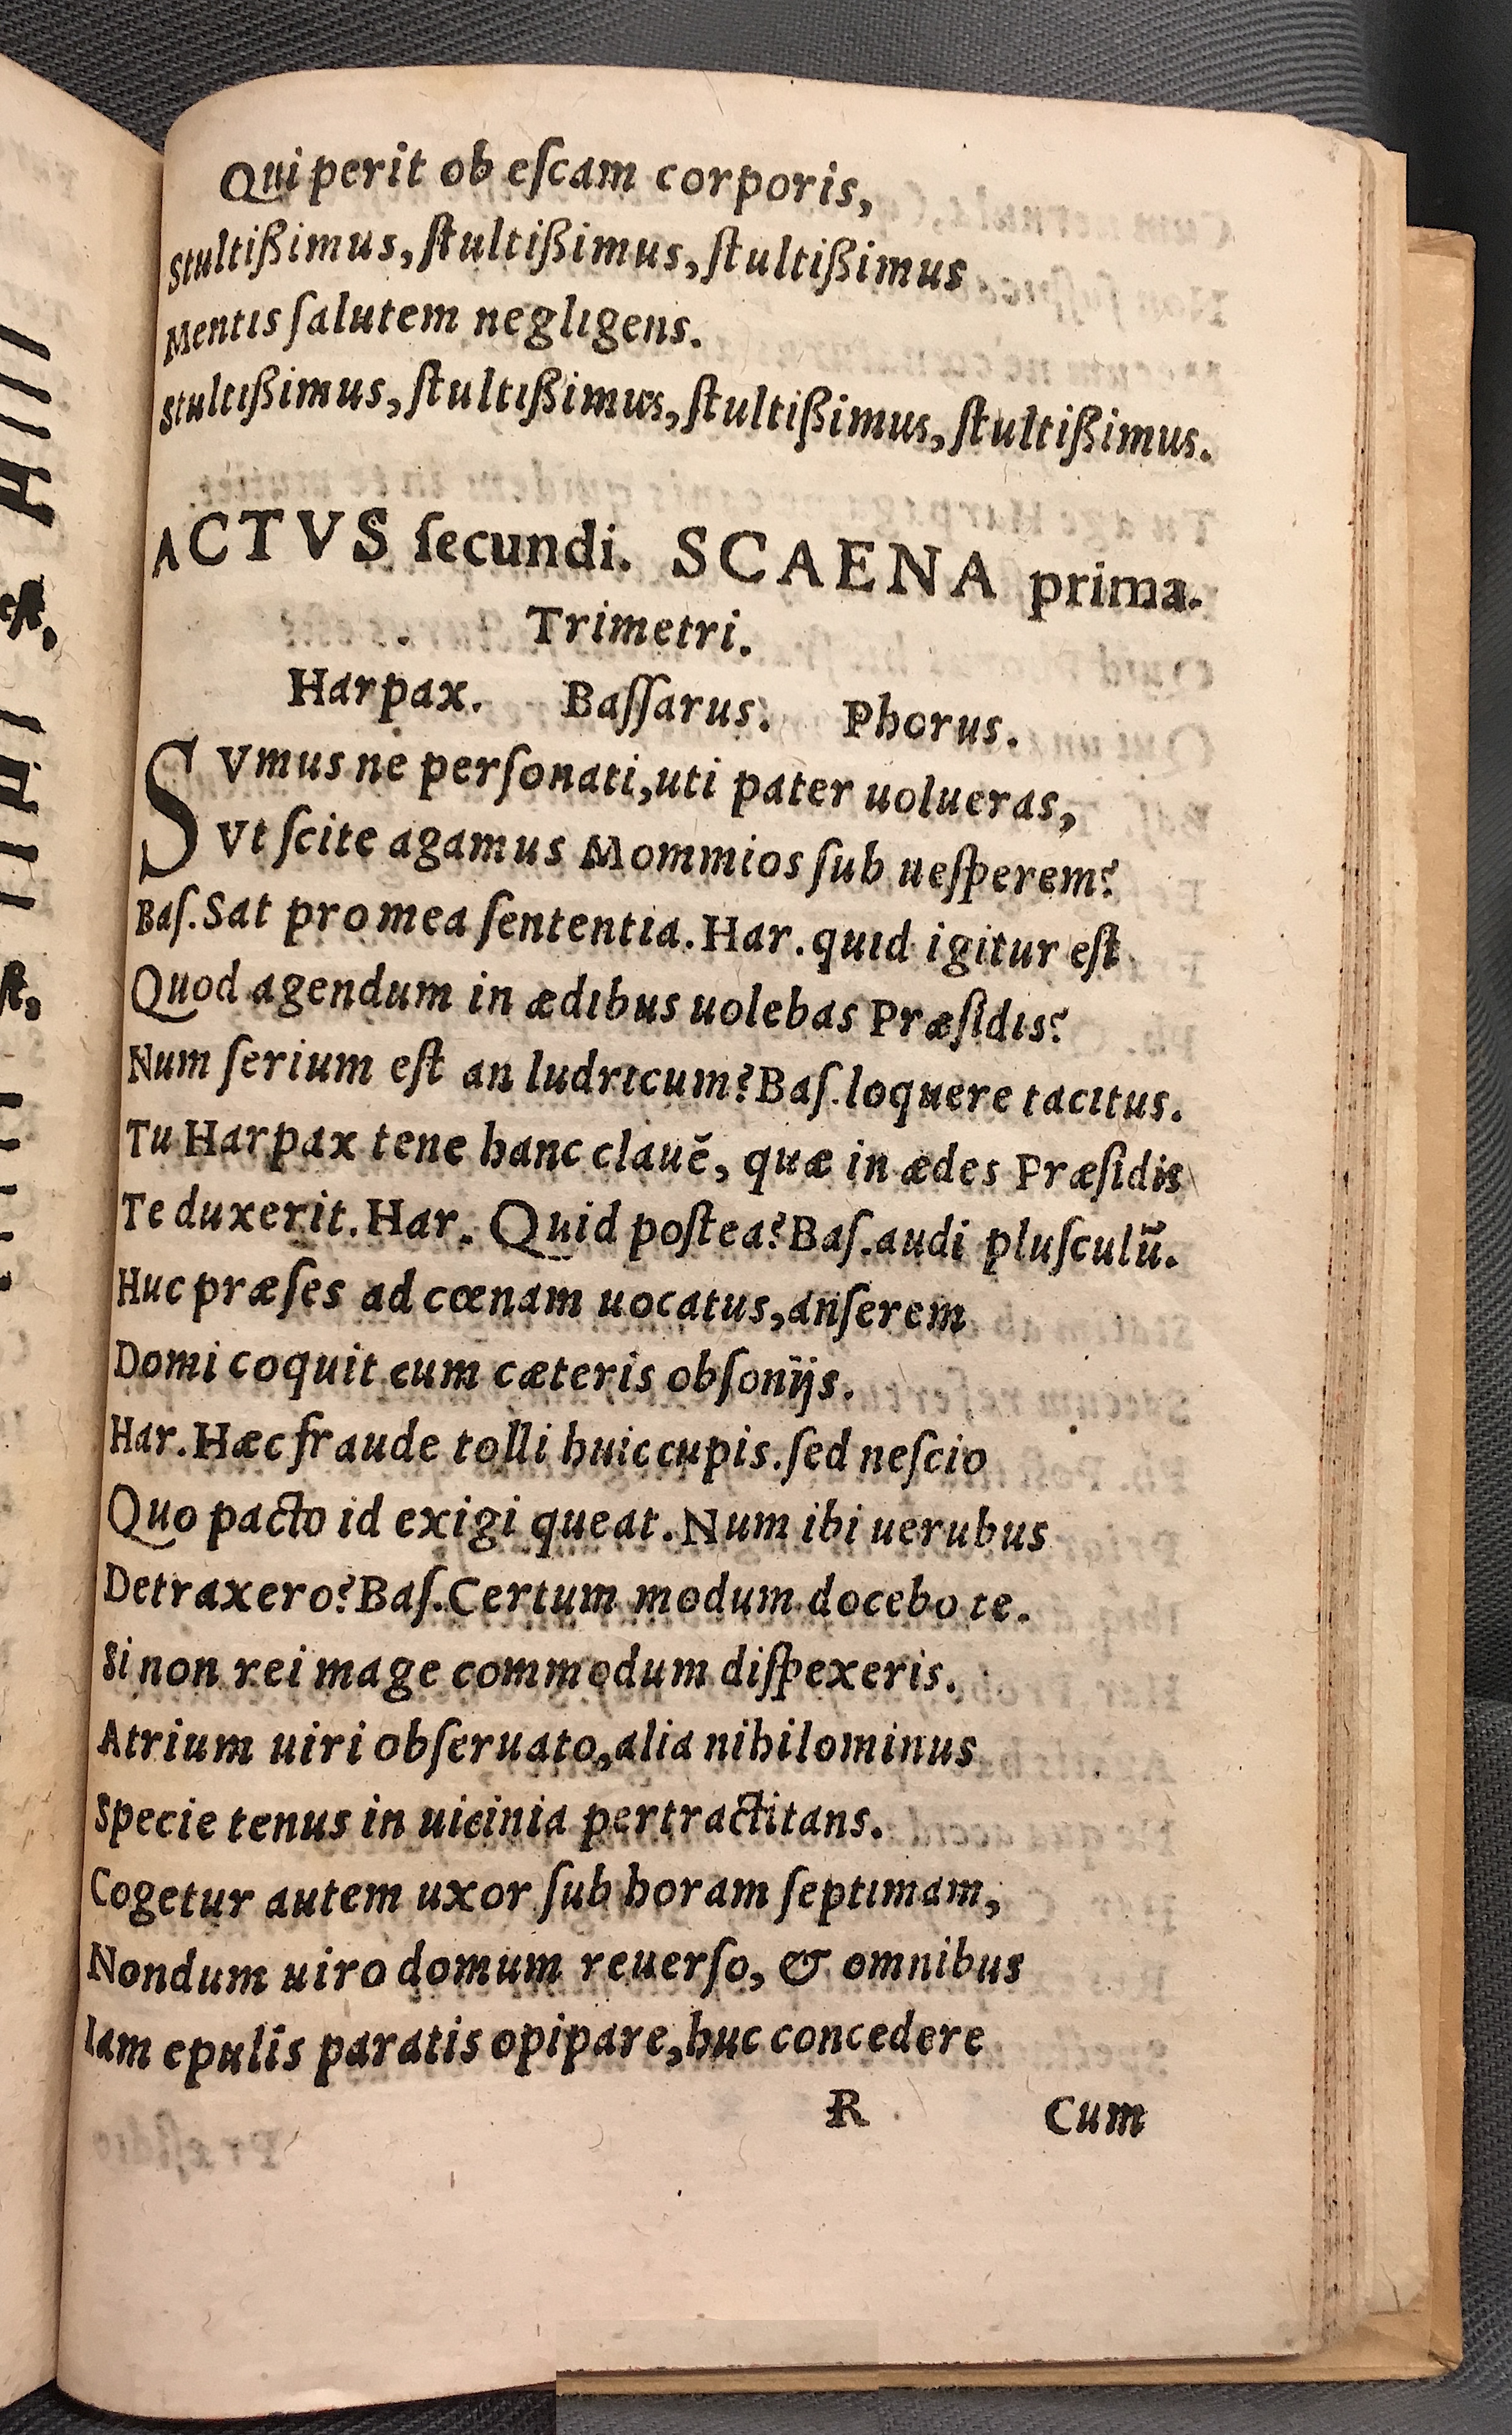 Qui perit ob eſcam corporis,
Stultißimus, ſtultißimus, ſtultißimus
Mentis ſalutem negligens.
Stultißimus, ſtultißimus, ſtultißimus, ſtultißimus.
ACTVS ſecundi. SCAENA prima.
Trimetri.
Harpax. Baſſarus. Phorus.
SVmus ne perſonati, uti pater uolueras,
Vt ſcite agamus Mommios ſub ueſperem?
Baſ. Sat pro mea ſententia. Har. quid igitur eſt
Quod agendum in ædibus uolebas Præſidis?
Num ſerium eſt an ludricum? Baſ. loquere tacitus.
Tu Harpax tene hanc clauē, quæ in ædes Præſidis
Te duxerit. Har. Quid poſtea? Baſ. audi pluſculū.
Huc præſes ad cœnam uocatus, anſerem
Domi coquit cum cæteris obſonijs.
Har. Hæc fraude tolli huic cupis. ſed neſcio
Quo pacto id exigi queat. Num ibi uerubus
Detraxero? Baſ. Certum modum docebo te.
Si non rei mage commodum diſpexeris.
Atrium uiri obſeruato, alia nihilominus
Specie tenus in uicinia pertractitans.
Cogetur autem uxor ſub horam ſeptimam,
Nondum uiro domum reuerſo, & omnibus
Iam epulis paratis opipare, huc concedere
R Cum